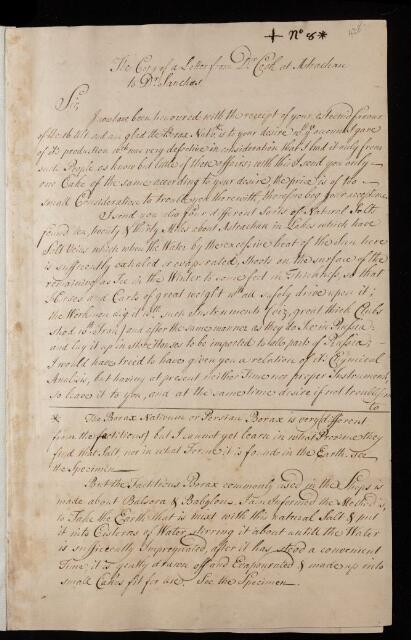 + N° 8*
The Copy of a Letter from Dr Cook at Astrachan
to Dr Sanches
Sir,
I now have been honoured with the receipt of your second favour
of
is to your desire account I gave
of its production was very defective in consideration that I had it only from
such People as know but little of these affairs; with this I send you only
one Cake of the same according to your desire, the price is of too
small Consideration to trouble you therewith, therefore beg your acceptance
I send you also four different Sorts of Natural Salts
found ten, twenty & thirty Miles about Astrachan in Lakes which have
Salt Veins which when the Water by the excessive heat of the Sun here
is sufficiently exhaled or evaporated, Shoots on the surface of the
remaining as Ice in the Winter to some feet in Thickness, so that
Horses and Carts of great weight may safely drive upon it;
the Workmen dig it with such Instruments (viz, great thick Clubs
shod with Iron) and after the same manner as they do Ice in Russia
and lay it up in Store houses to be imported to all parts of Russia;
I would have tried to have given you a relation of its Chymical
Analysis, but having at present neither Time nor proper Instruments
so leave it to you, and at the same time desire if not troublesom
to
* The Borax Nativum or Persian Borax is very different
from the factitious; but I cannot yet learn in what Province they
find that Salt nor in what Form it is found in the Earth. See
the Specimen
But the Factitious Borax commonly used in the Shops is
made about Balsora & Babylon. I am Informed the Method is,
to Take the Earth that is mixt with this natural Salt & put
it into Cisterns of Water stirring it about untill the Water
is sufficiently Impregnated, after it has stood a convenient
Time it is gently drawn off and Evapourated & made up into
small Cakes fit for use. See the Specimen.